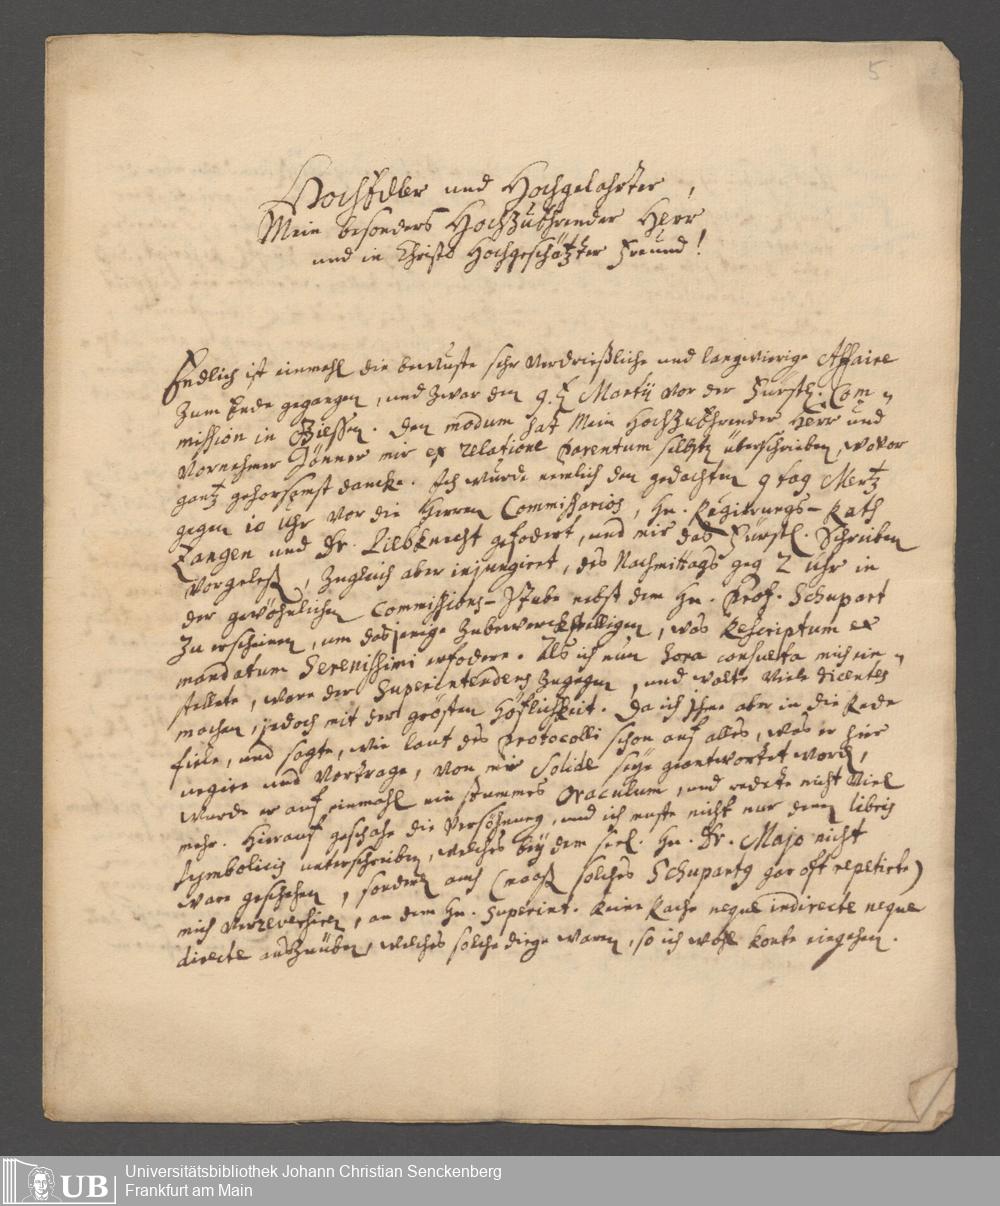 5
HochEdler und Hochgelahrter,
Mein besonders HochzuEhrender Herr
und in Christo Hochgeschätzter Freund!
Endlich ist einmahl die bewuste sehr verdrießliche und langwierige Affaire
zum Ende gegangen, und zwar den 9. Martii vor der Fürstl. Com-
mission in Giessen. Den modum hat Mein HochzuEhrender Herr und
Vornehmer Gönner mir ex relatione Parentum selbsten überschrieben, wovor
gantz gehorsamst dancke. Ich wurde nemlich den gedachten 9 tag Mertz
gegen 10 Uhr vor die Herren Commissarios, Hn. Regierungs-Rath
Langen und Dr. Liebknecht gefodert, und mir das Fürstl. Schreiben
vorgeleßen, zugleich aber injungiret, des Nachmittags geg 2 Uhr in
der gewöhnlichen Commissions-Stube nebst dem Hn. Prof. Schupart
zu erscheinen, um dasjenige zubewerckstelligen, was Rescriptum ex
mandatum Serenissimi erfodere. Als ich nun hora consueta mich ein-
stellete, ware der Superintendens zugegen, und wolte viele dicentes
machen, jedoch mit der grösten Höflichkeit. Da ich ihm aber in die Rede
fiele, und sagte, wie laut des Protocolli schon auf alles, was er hier
negire und vortrage, von mir solide seye geantwortet word,
wurde er auf einmahl ein stummes Oraculum, und redete nicht viel
mehr. Hierauf geschahe die Versöhnung, und ich muste nicht nur denen libris
symbolicis unterschreiben, welches bey dem seel. Hn. Dr. Majo nicht
ware geschehen, sondern auch (maaß solches Schupartg gar oft repetirte)
mich verreversiren, an dem Hn. Superint. keine Rache neque indirecte neque
directe auszuüben, welches solche dinge waren, so ich wohl konte eingehen.
UB
Universitätsbibliothek Johann Christian Senckenberg
Frankfurt am Main